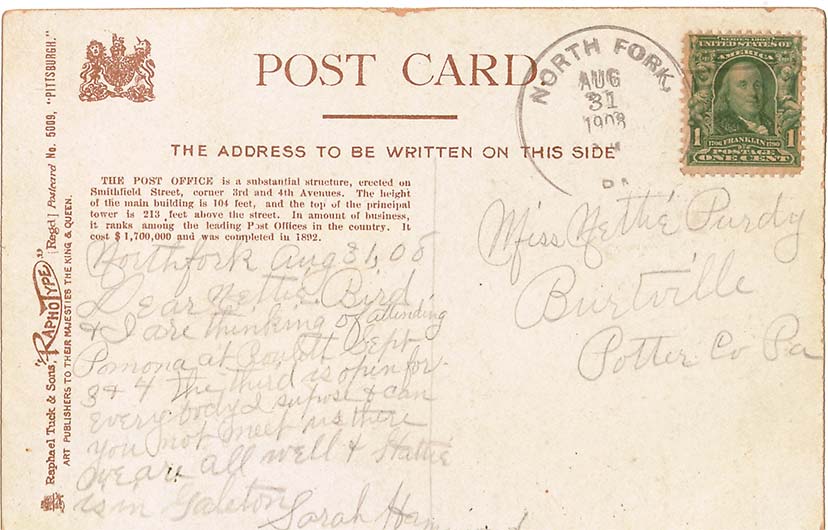 POST CARD.
THE ADDRESS TO BE WRITTEN ON THIS SIDE
THE POST OFFICE is a substantial structure, erected on
Smithfield Street, corner 3rd and 4th Avenues. The height
of the main building is 104 feet, and the top of the principal
tower is 213 feet above the street. In amount of business,
it ranks among the leading Post Offices in the country. It
cost $1,700,000 and was completed in 1892.
Northfork Aug 31, 08
Dear Nettie. Bird
& I are thinking of attending
Pomona at Roulett Sept-
3 & 4 The third is open for
every body I supose & can
you not meet us there
We are all well & Hattie
is in Galeton
Sarah
NORTH FORK,
AUG
31
1908
PA
SERIES 1902
UNITED STATES OF
AMERICA
1 1
1706 FRANKLIN 1790
POSTAGE
ONE CENT
Miss Nettie Purdy
Burtville
Potter Co Pa
Raphael Tuck & Sons' "RAPHOTYPE" [Regd] Postcard No. 5009, "PITTSBURGH."
ART PUBLISHERS TO THEIR MAJESTIES THE KING & QUEEN.